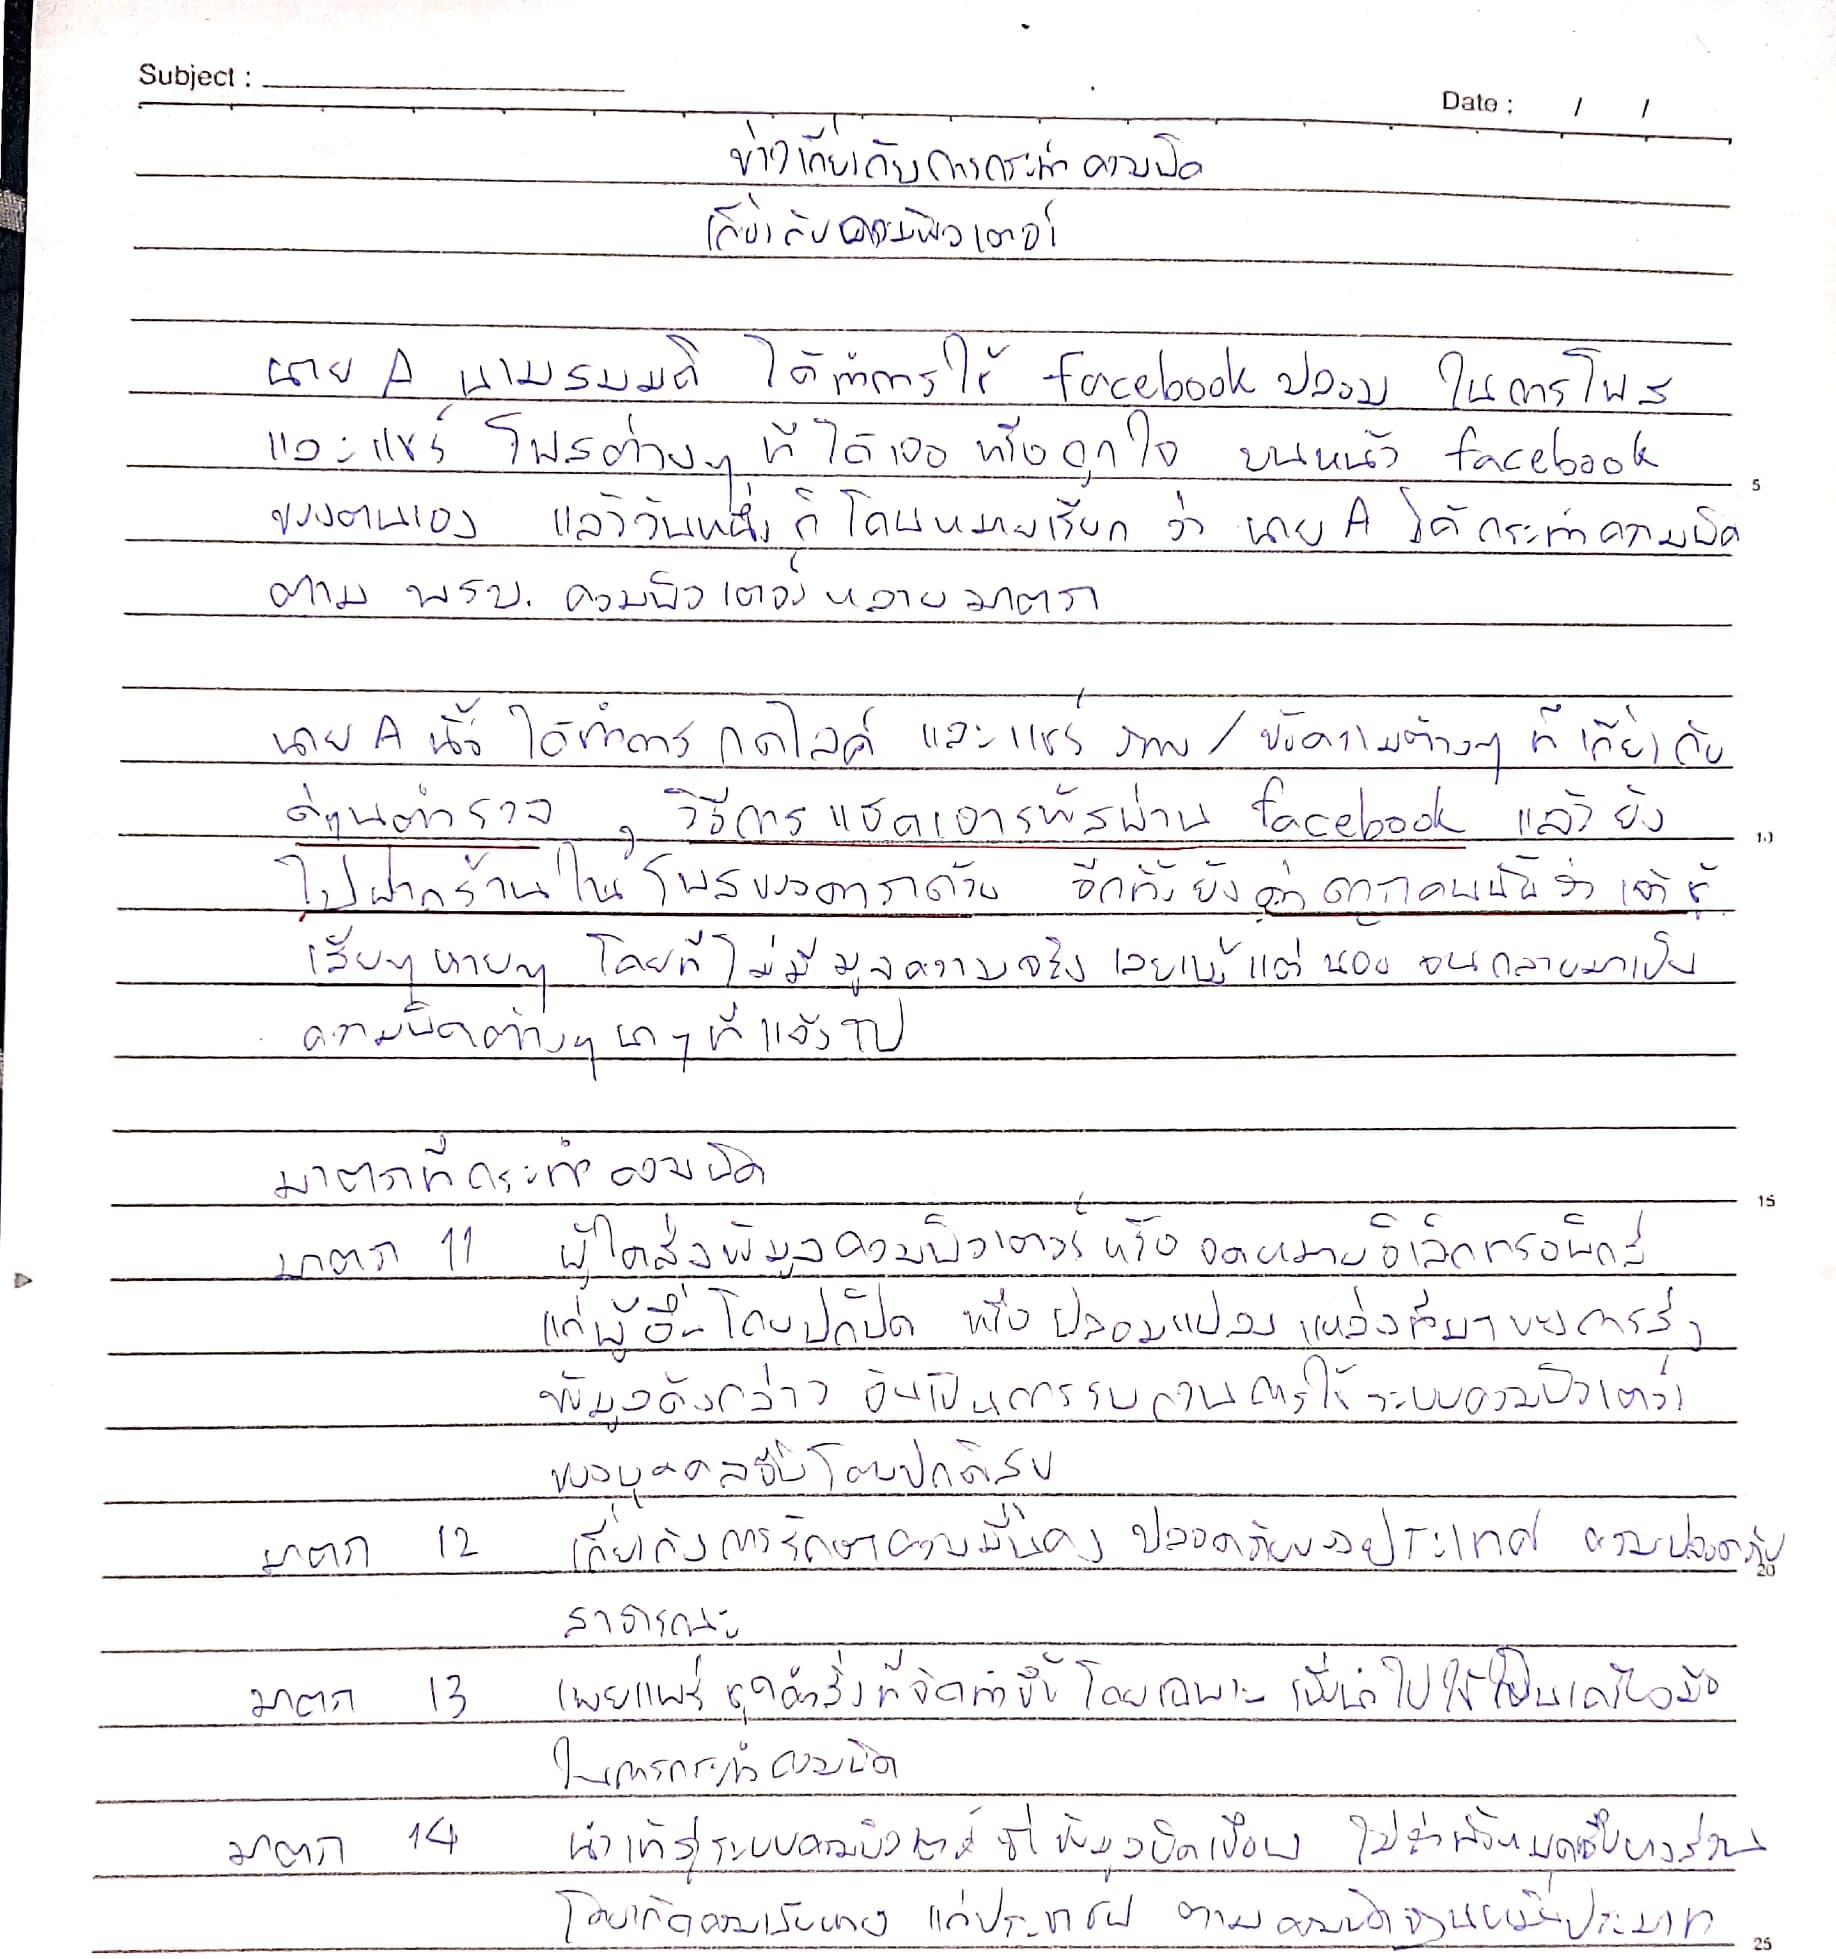 Subject :
Date : / /
ข่าวเกี่ยวกับการกระทำความผิด
เกี่ยวกับคอมพิวเตอร์
นาย A นามสมมติ ได้ทำการใช้ facebook ปลอม ในการโพส
และแชร์ โพสต่างๆ ที่ได้เจอ หรือถูกใจ บนหน้า facebook
5
ของตนเอง แล้ววันหนึ่ง ก็โดนหมายเรียก ว่า นาย A ได้กระทำความผิด
ตาม พรบ. คอมพิวเตอร์ หลายมาตรา
นาย A นั้น ได้ทำการ กดไลค์ และแชร์ ภาพ / ข้อความต่างๆ ที่เกี่ยวกับ
ดูหมิ่นตำรวจ , วิธีการแฮคเอารหัสผ่าน facebook แล้วยัง
10
ไปฝากร้านในโพสของดาราด้วย อีกทั้งยังด่าดาราคนนั้นว่าเจ้าชู้
เสียๆหายๆ โดยที่ไม่มีมูลความจริงเลยแม้แต่น้อย จนกลายมาเป็น
ความผิดต่างๆนาๆที่แจ้งไป
มาตราที่กระทำความผิด
15
มาตรา 11 ผู้ใดส่งข้อมูลคอมพิวเตอร์หรือ จดหมายอิเล็กทรอนิกส์
แก่ผู้อื่นโดยปกปิด หรือปลอมแปลง แหล่งที่มาของการส่ง
ข้อมูลดังกล่าว อันเป็นการรบกวนการใช้ระบบคอมพิวเตอร์
ของบุคคลอื่นโดยปกติสุข
มาตรา 12 เกี่ยวกับการรักษาความมั่นคง ปลอดภัยของประเทศ ความปลอดภัย
20
สาธารณะ
มาตรา 13 เผยแพร่ ชุดคำสั่งที่จัดทำขึ้นโดยเฉพาะ เพื่อนำไปใช้เป็นเครื่องมือ
ในการกระทำความผิด
มาตรา 14 นำเข้าสู่ระบบคอมพิวเตอร์ ซึ่งข้อมูลบิดเบือน ไม่ว่าทั้งหมดหรือบางส่วน
โดยเกิดความเสียหาย แก่ประชาชน ตามความผิดฐานหมิ่นประมาท
25